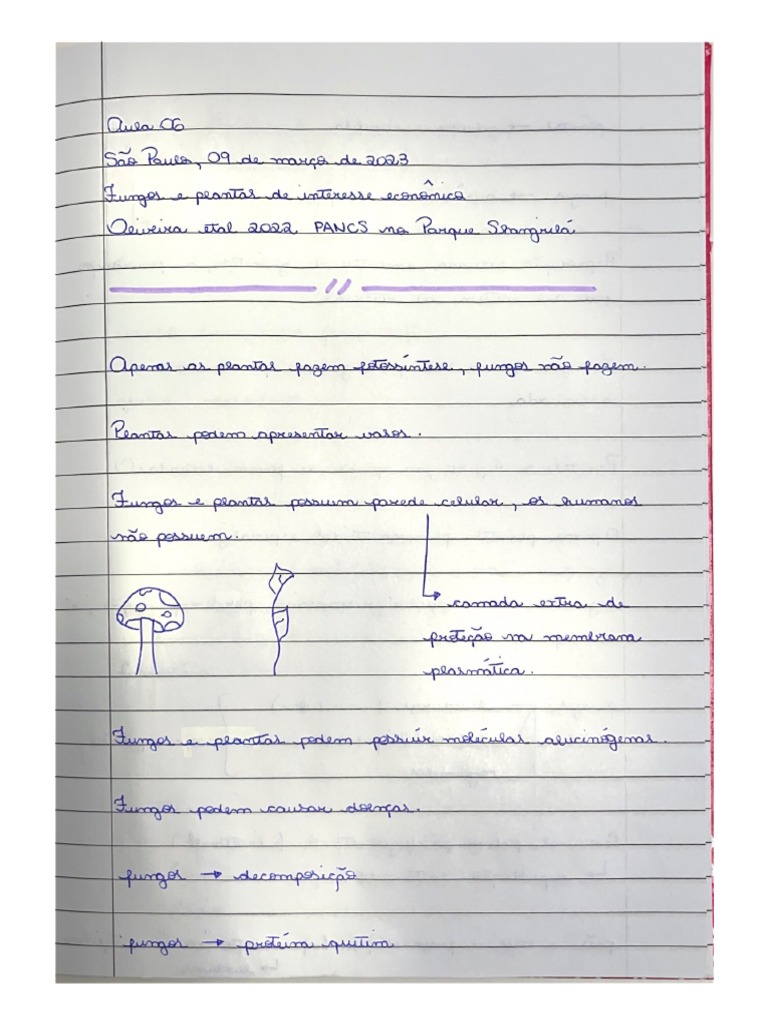 Aula 06
São Paulo, 09 de março de 2023
Fungos e plantas de interesse econômico
Oliveira etal 2022 PANCS no Parque Shangrilá
Apenas as plantas fazem fotossíntese, fungos não fazem.
Plantas podem apresentar vasos.
Fungos e plantas possuem parede celular, os humanos
não possuem.
camada extra de
proteção na membrana
plasmática.
Fungos e plantas podem possuir moléculas alucinógenas.
Fungos podem causar doenças.
fungos → decomposição
fungos → proteína quitina